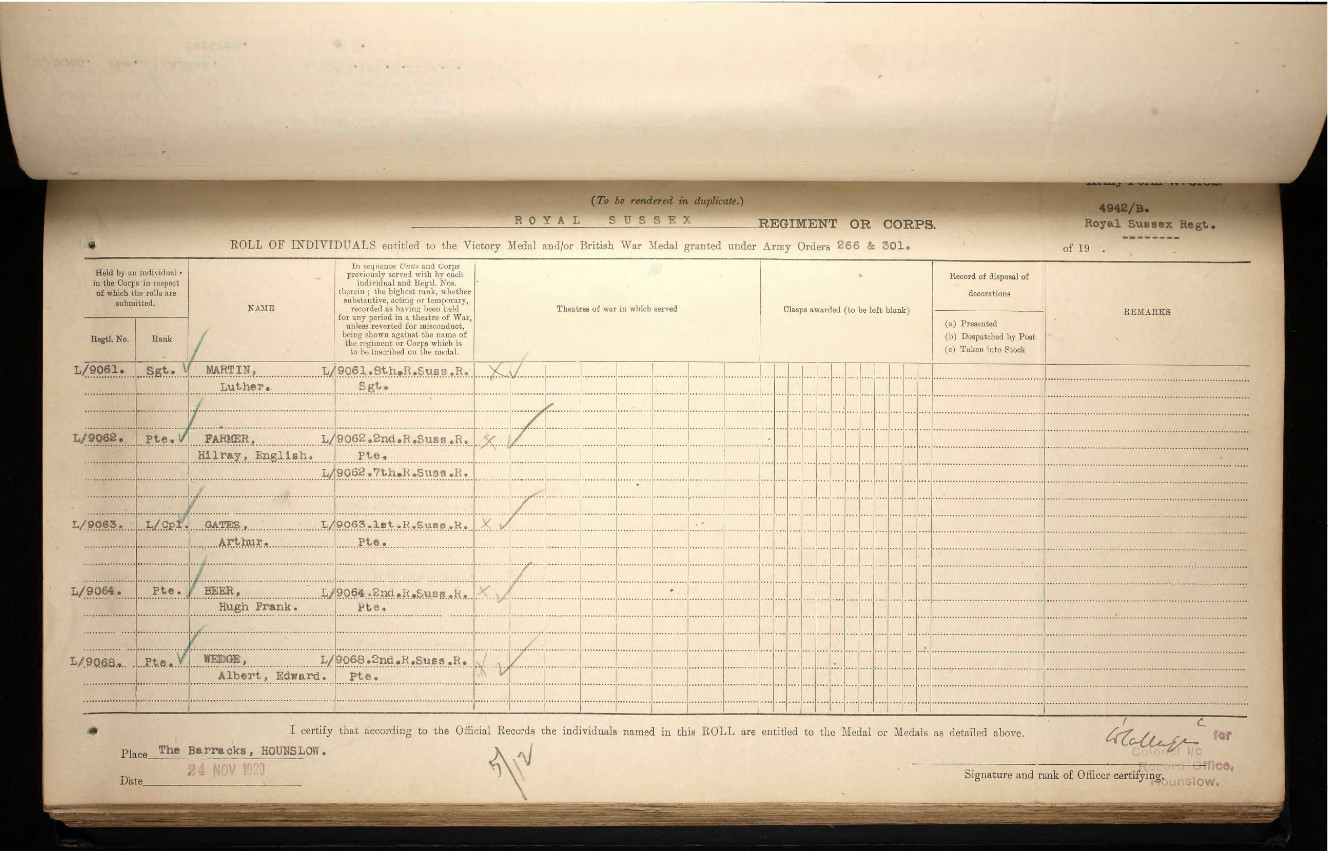 (To be rendered in duplicate.)
4942/B.
ROYAL SUSSEX REGIMENT OR CORPS.
Royal Sussex Regt.
--------
ROLL OF INDIVIDUALS entitled to the Victory Medal and/or British War Medal granted under Army Orders 266 & 301.
of 19 .
Held by an individual
in the Corps in respect
of which the rolls are
submitted.
Regtl. No.
Rank
NAME
In sequence Units and Corps
previously served with by each
individual and Regtl. Nos.
therein ; the highest rank, whether
substantive, acting or temporary,
recorded as having been held
for any period in a theatre of War,
unless reverted for misconduct,
being shown against the name of
the regiment or Corps which is
to be inscribed on the medal.
Theatres of war in which served
Clasps awarded (to be left blank)
Record of disposal of
decorations
(a) Presented
(b) Despatched by Post
(c) Taken into Stock
REMARKS
L/9061. Sgt. MARTIN, L/9061.8th.R.Suss.R. X
Luther. Sgt.
L/9062. Pte. FARMER, L/9062.2nd.R.Suss.R. X
Hilray, English. Pte.
L/9062.7th.R.Suss.R.
L/9063. L/Cpl. GATES, L/9063.1st.R.Suss.R. X
Arthur. Pte.
L/9064. Pte. BEER, L/9064.2nd.R.Suss.R. X
Hugh Frank. Pte.
L/9068. Pte. WEDGE, L/9068.2nd.R.Suss.R. X
Albert, Edward. Pte.
I certify that according to the Official Records the individuals named in this ROLL are entitled to the Medal or Medals as detailed above.
Place The Barracks, HOUNSLOW.
Date 24 NOV 1920
5/12
for
Colonel i/c
Record Office,
Hounslow.
Signature and rank of Officer certifying.